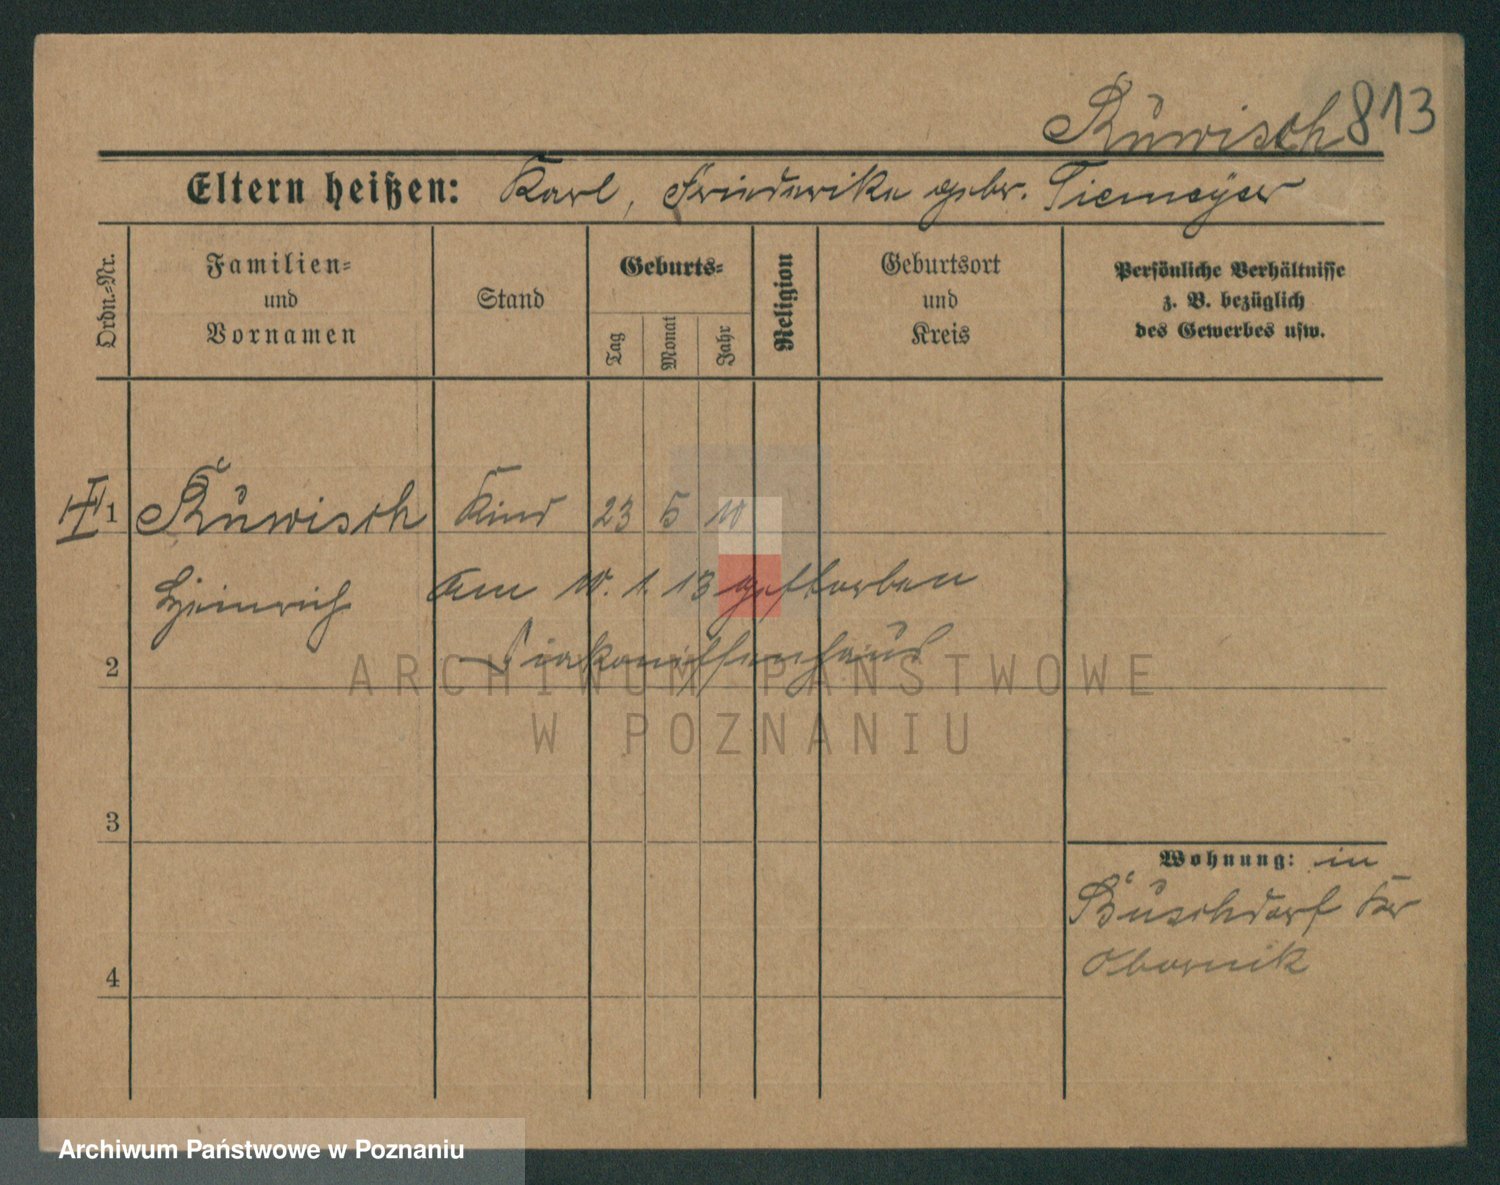 Ruwisch 813
Eltern heißen: Karl, Friederike gebr. Tiemeyer
Ordn.-Nr.
Familien-
und
Vornamen
Stand
Geburts-
Tag
Monat
Jahr
Religion
Geburtsort
und
Kreis
Persönliche Verhältnisse
z. B. bezüglich
des Gewerbes usw.
1 Ruwisch Kind 23 5 10
Heinrich am 10. 1. 13 gestorben
2 Diakonissenhaus
3
4
Wohnung: in
Buschdorf Kr
Obornik
ARCHIWUM PAŃSTWOWE
W POZNANIU
Archiwum Państwowe w Poznaniu